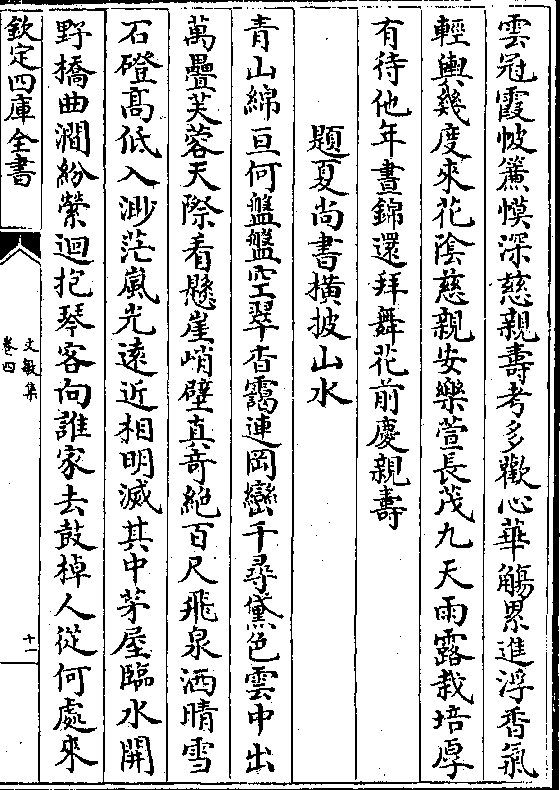 雲冠霞帔簾幙深慈親壽考多歡心華觴累進浮香氣
輕輿幾度來花陰慈親安樂萱長茂九天雨露栽培厚
有待他年晝錦還拜舞花前慶親壽
題夏尚書橫披山水
青山綿亘何盤盤空翠杳靄連岡巒千尋黛色雲中出
萬疊芙蓉天際看懸崖峭壁真奇絶百尺飛泉洒晴雪
石磴高低入渺茫嵐光遠近相明滅其中茅屋臨水開
野橋曲澗紛縈迴抱琴客向誰家去鼓棹人從何處來
欽定四庫全書
文敏集
卷四
十一